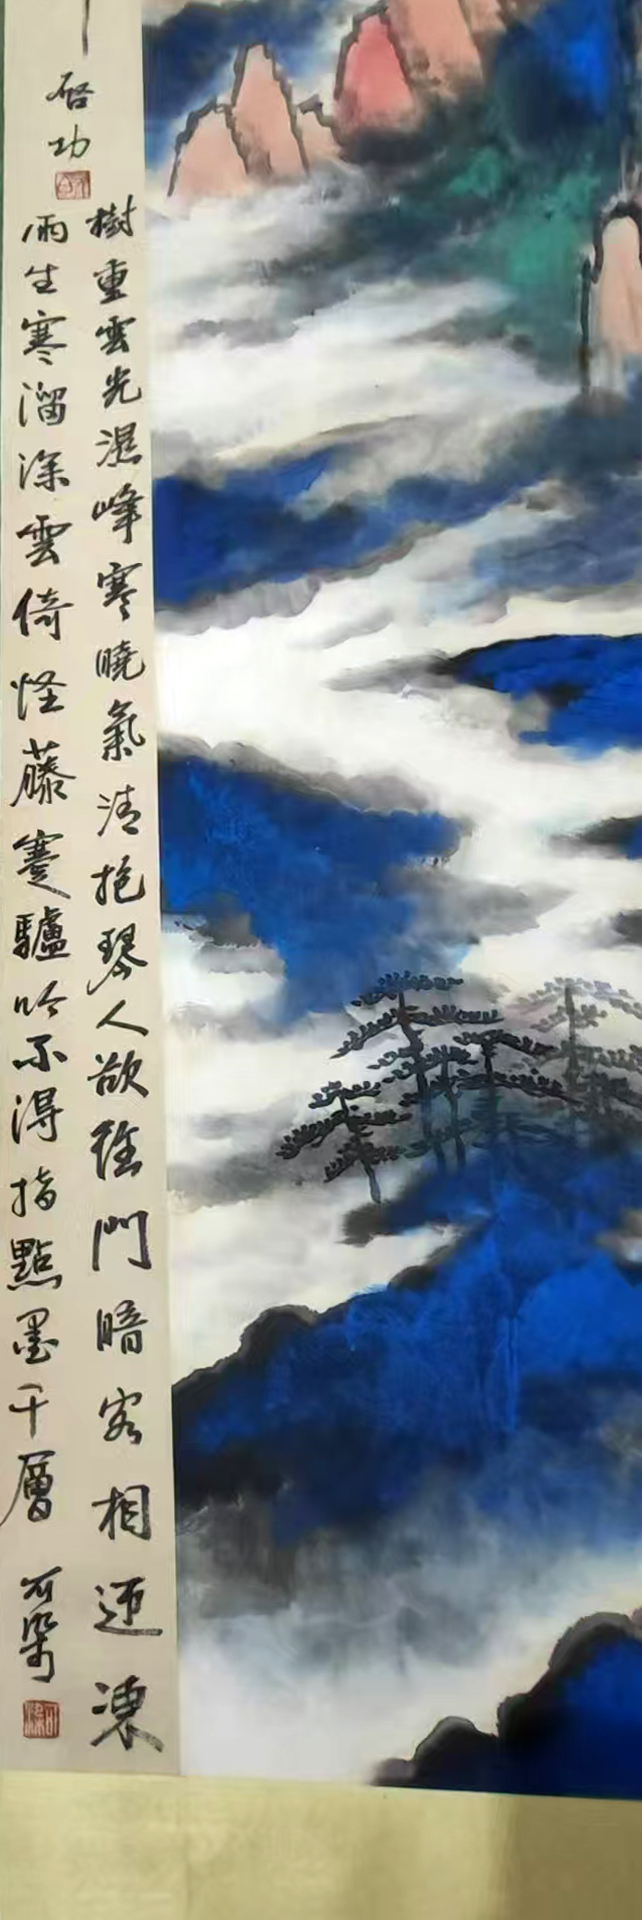 启功
樹重雲光濕峰寒曉氣清抱琴人欲往門暗客相迎凍
雨生寒溜深雲倚怪藤蹇驢吟不得指點墨千層
可染